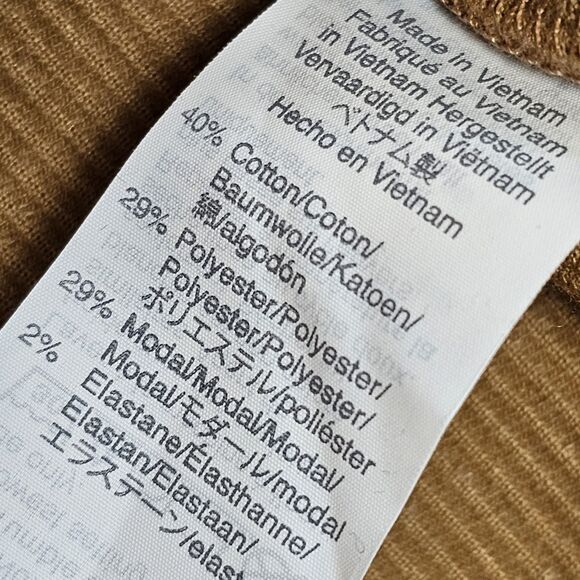 Made in Vietnam
Fabriqué au Vietnam
in Vietnam Hergestellt
Vervaardigd in Viëtnam
ベトナム製
Hecho en Vietnam
40% Cotton/Coton/
Baumwolle/Katoen/
綿/algodón
29% Polyester/Polyester/
Polyester/Polyester/
ポリエステル/poliéster
29% Modal/Modal/Modal/
Modal/モダール/modal
2% Elastane/Élasthanne/
Elastan/Elastaan/
エラステーン/elast